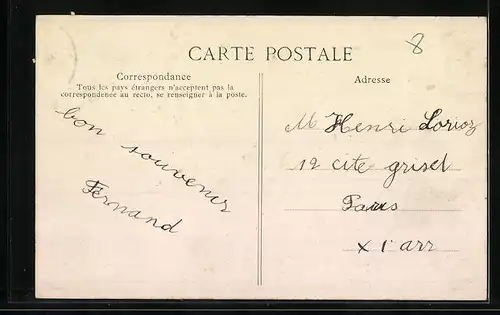 8
CARTE POSTALE
Correspondance
Tous les pays étrangers n'acceptent pas la
correspondence au recto, se renseigner à la poste.
bon souvenir
Fernand
Adresse
M Henri Lorioz
12 cite grisel
Paris
XI arr